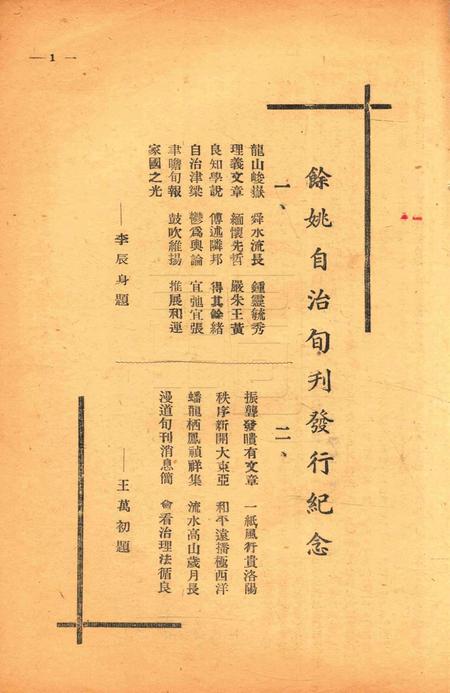 — 1 —
餘姚自治旬刊發行紀念
一、
龍山峻嶽　舜水流長　鍾靈毓秀
理義文章　緬懷先哲　嚴朱王黃
良知學說　傳述隣邦　得其餘緒
自治津梁　鬱爲輿論　宜弛宜張
聿瞻旬報　鼓吹維揚　推展和運
家國之光
——李辰身題
二、
振聾發聵有文章　一紙風行貴洛陽
秩序新開大東亞　和平遠播極西洋
蟠龍栖鳳禎祥集　流水高山歲月長
漫道旬刊消息簡　會看治理法循良
——王萬初題